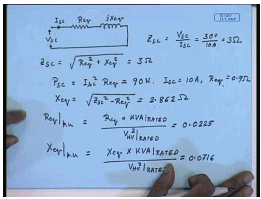 Isc Req jXeq
Vsc
Zsc = Vsc/Isc = 30V/10A = 3Ω
Zsc = √(Req² + Xeq²) = 3Ω
Psc = Isc² Req = 90W, Isc = 10A, Req = 0.9Ω
Xeq = √(Zsc² - Req²) = 2.862Ω
Req|pu = Req × KVA|RATED / VHV²|RATED = 0.0225
Xeq|pu = Xeq × KVA|RATED / VHV²|RATED = 0.0716